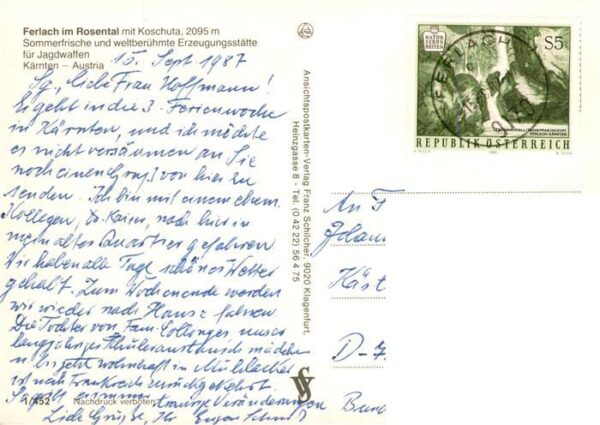 Ferlach im Rosental mit Koschuta, 2095 m
Sommerfrische und weltberühmte Erzeugungsstätte
für Jagdwaffen
Kärnten – Austria
15. Sept 1987
Sg., liebe Frau Hoffmann!
Es geht in die 3. Ferienwoche
in Kärnten, und ich möchte
es nicht versäumen an Sie
noch einen Gruß von hier zu
senden. Ich bin mit einem ehem.
Kollegen, Dr. Kaiser, nach hier in
mein altes Quartier gefahren
Wir haben alle Tage schönes Wetter
gehabt. Zum Wochenende werden
wir wieder nach Hause fahren
Die Tochter von Fam. Collonges unser
langjähriges Schüleraustausch mädchen
bis jetzt wohnhaft in Mühlacker
ist nach Frankreich zurückgekehrt.
So gibt es immer traurige Veränderungen
Liebe Grüsse, Ihr Eugen
4/452 Nachdruck verboten
Ansichtspostkarten-Verlag Franz Schilcher, 9020 Klagenfurt,
Heinzgasse 8 - Tel. (0 42 22) 56 4 75
NATUR
SCHÖN
HEITEN
S5
FERLACH
REPUBLIK ÖSTERREICH
An F
Johan
Käst
D-7
Bund